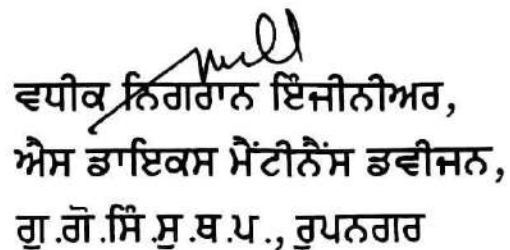 ਵਧੀਕ ਨਿਗਰਾਨ ਇੰਜੀਨੀਅਰ,
ਐਸ ਡਾਇਕਸ ਮੈਂਟੀਨੈਂਸ ਡਵੀਜਨ,
ਗੁ.ਗੋ.ਸਿੰ.ਸੁ.ਥ.ਪ., ਰੂਪਨਗਰ